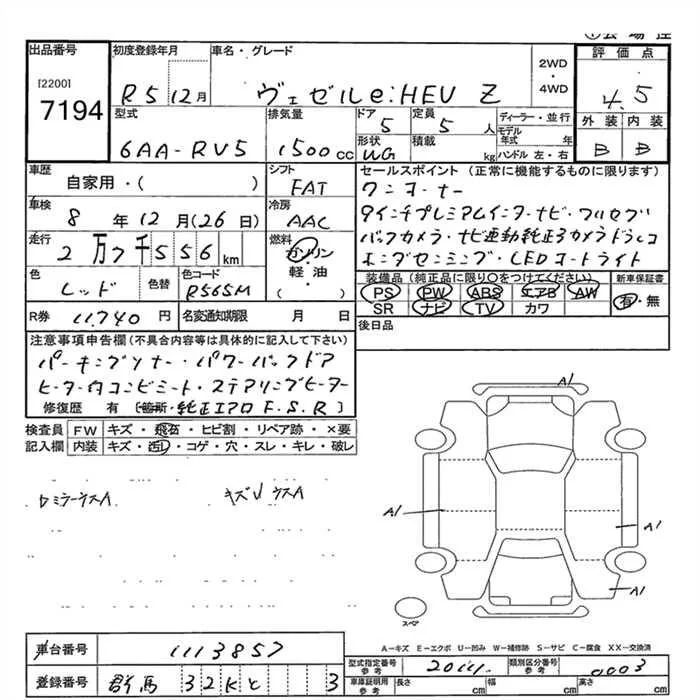 出品番号
[2200]
7194
初度登録年月
R5 12月
車名・グレード
ヴェゼルe:HEV Z
2WD
・
4WD
評価点
4.5
外装 内装
B B
型式
6AA-RV5
排気量
1500cc
ドア
5
定員
5人
形状
WG
積載
kg
ディーラー・並行
モデル年式 年
ハンドル 左・右
車歴
自家用・( )
シフト
FAT
車検
8年12月(26日)
冷房
AAC
走行
2万7千556km
燃料
ガソリン
軽油
( )
色
レッド
色替
色コード
R565M
R券 11,740円
名変通知期限 月 日
セールスポイント(正常に機能するものに限ります)
ワンオーナー
9インチプレミアムインターナビ・フルセグ
バックカメラ・ナビ連動純正カメラドラレコ
ホンダセンシング・LEDコートライト
装備品(純正品に限り○をつけてください)
PS PW ABS エアB AW
SR ナビ TV カワ
新車保証書
有・無
後日品
注意事項申告欄(不具合内容等は具体的に記入して下さい)
パーキングソナー・パワーバックドア
ヒーター付コンビシート・ステアリングヒーター
修復歴 有 [箇所・純正エアロF.S.R]
検査員 FW キズ・飛石・ヒビ割・リペア跡・×要
記入欄 内装 キズ・汚レ・コゲ・穴・スレ・キレ・破レ
キズU ウスA
A1
A1
A1
A1
スペア
A-キズ E-エクボ U-凹み W-補修跡 S-サビ C-腐食 XX-交換済
車台番号 1113857
登録番号 群馬 32 3
型式指定番号 参考
類別区分番号 参考 0003
車庫証明用 参考 長さ cm 幅 cm 高さ cm